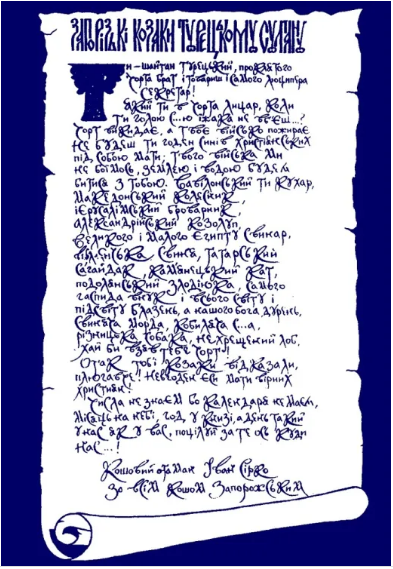 ЗАПОРІЗЬКІ КОЗАКИ ТУРЕЦЬКОМУ СУЛТАНУ
Ти – шайтан турецький, проклятого
чорта брат і товариш і самого люципера
секретар!
Який ти в чорта лицар, коли
ти голою с...ю їжака не вб'єш...?
Чорт викидає, а твоє військо пожирає.
Не будеш ти годен синів християнських
під собою мати; твого війська ми
не боїмось, землею і водою будем
битися з тобою. Вавілонський ти кухар,
македонський колесник,
ієрусалімський броварник,
александрійський козолуп,
Великого і Малого Єгипту свинар,
свиня, татарський
сагайдак, каменецький кат,
подолянський злодіюка, самого
гаспида внук і всього світу і
підсвіту блазень, а нашого бога дурень,
свиняча морда, кобиляча с...а,
різницька собака, нехрещений лоб,
хай би взяв тебе чорт!
Отак тобі козаки відказали,
плюгавче! Невгоден єси мати вірних
християн!
Числа не знаєм бо календаря не маєм,
місяць на небі, год у книзі, а день такий
у нас як у вас, поцілуй за те ось куди
нас...!
Кошовий отаман Іван Сірко
зо всім кошом запорожським